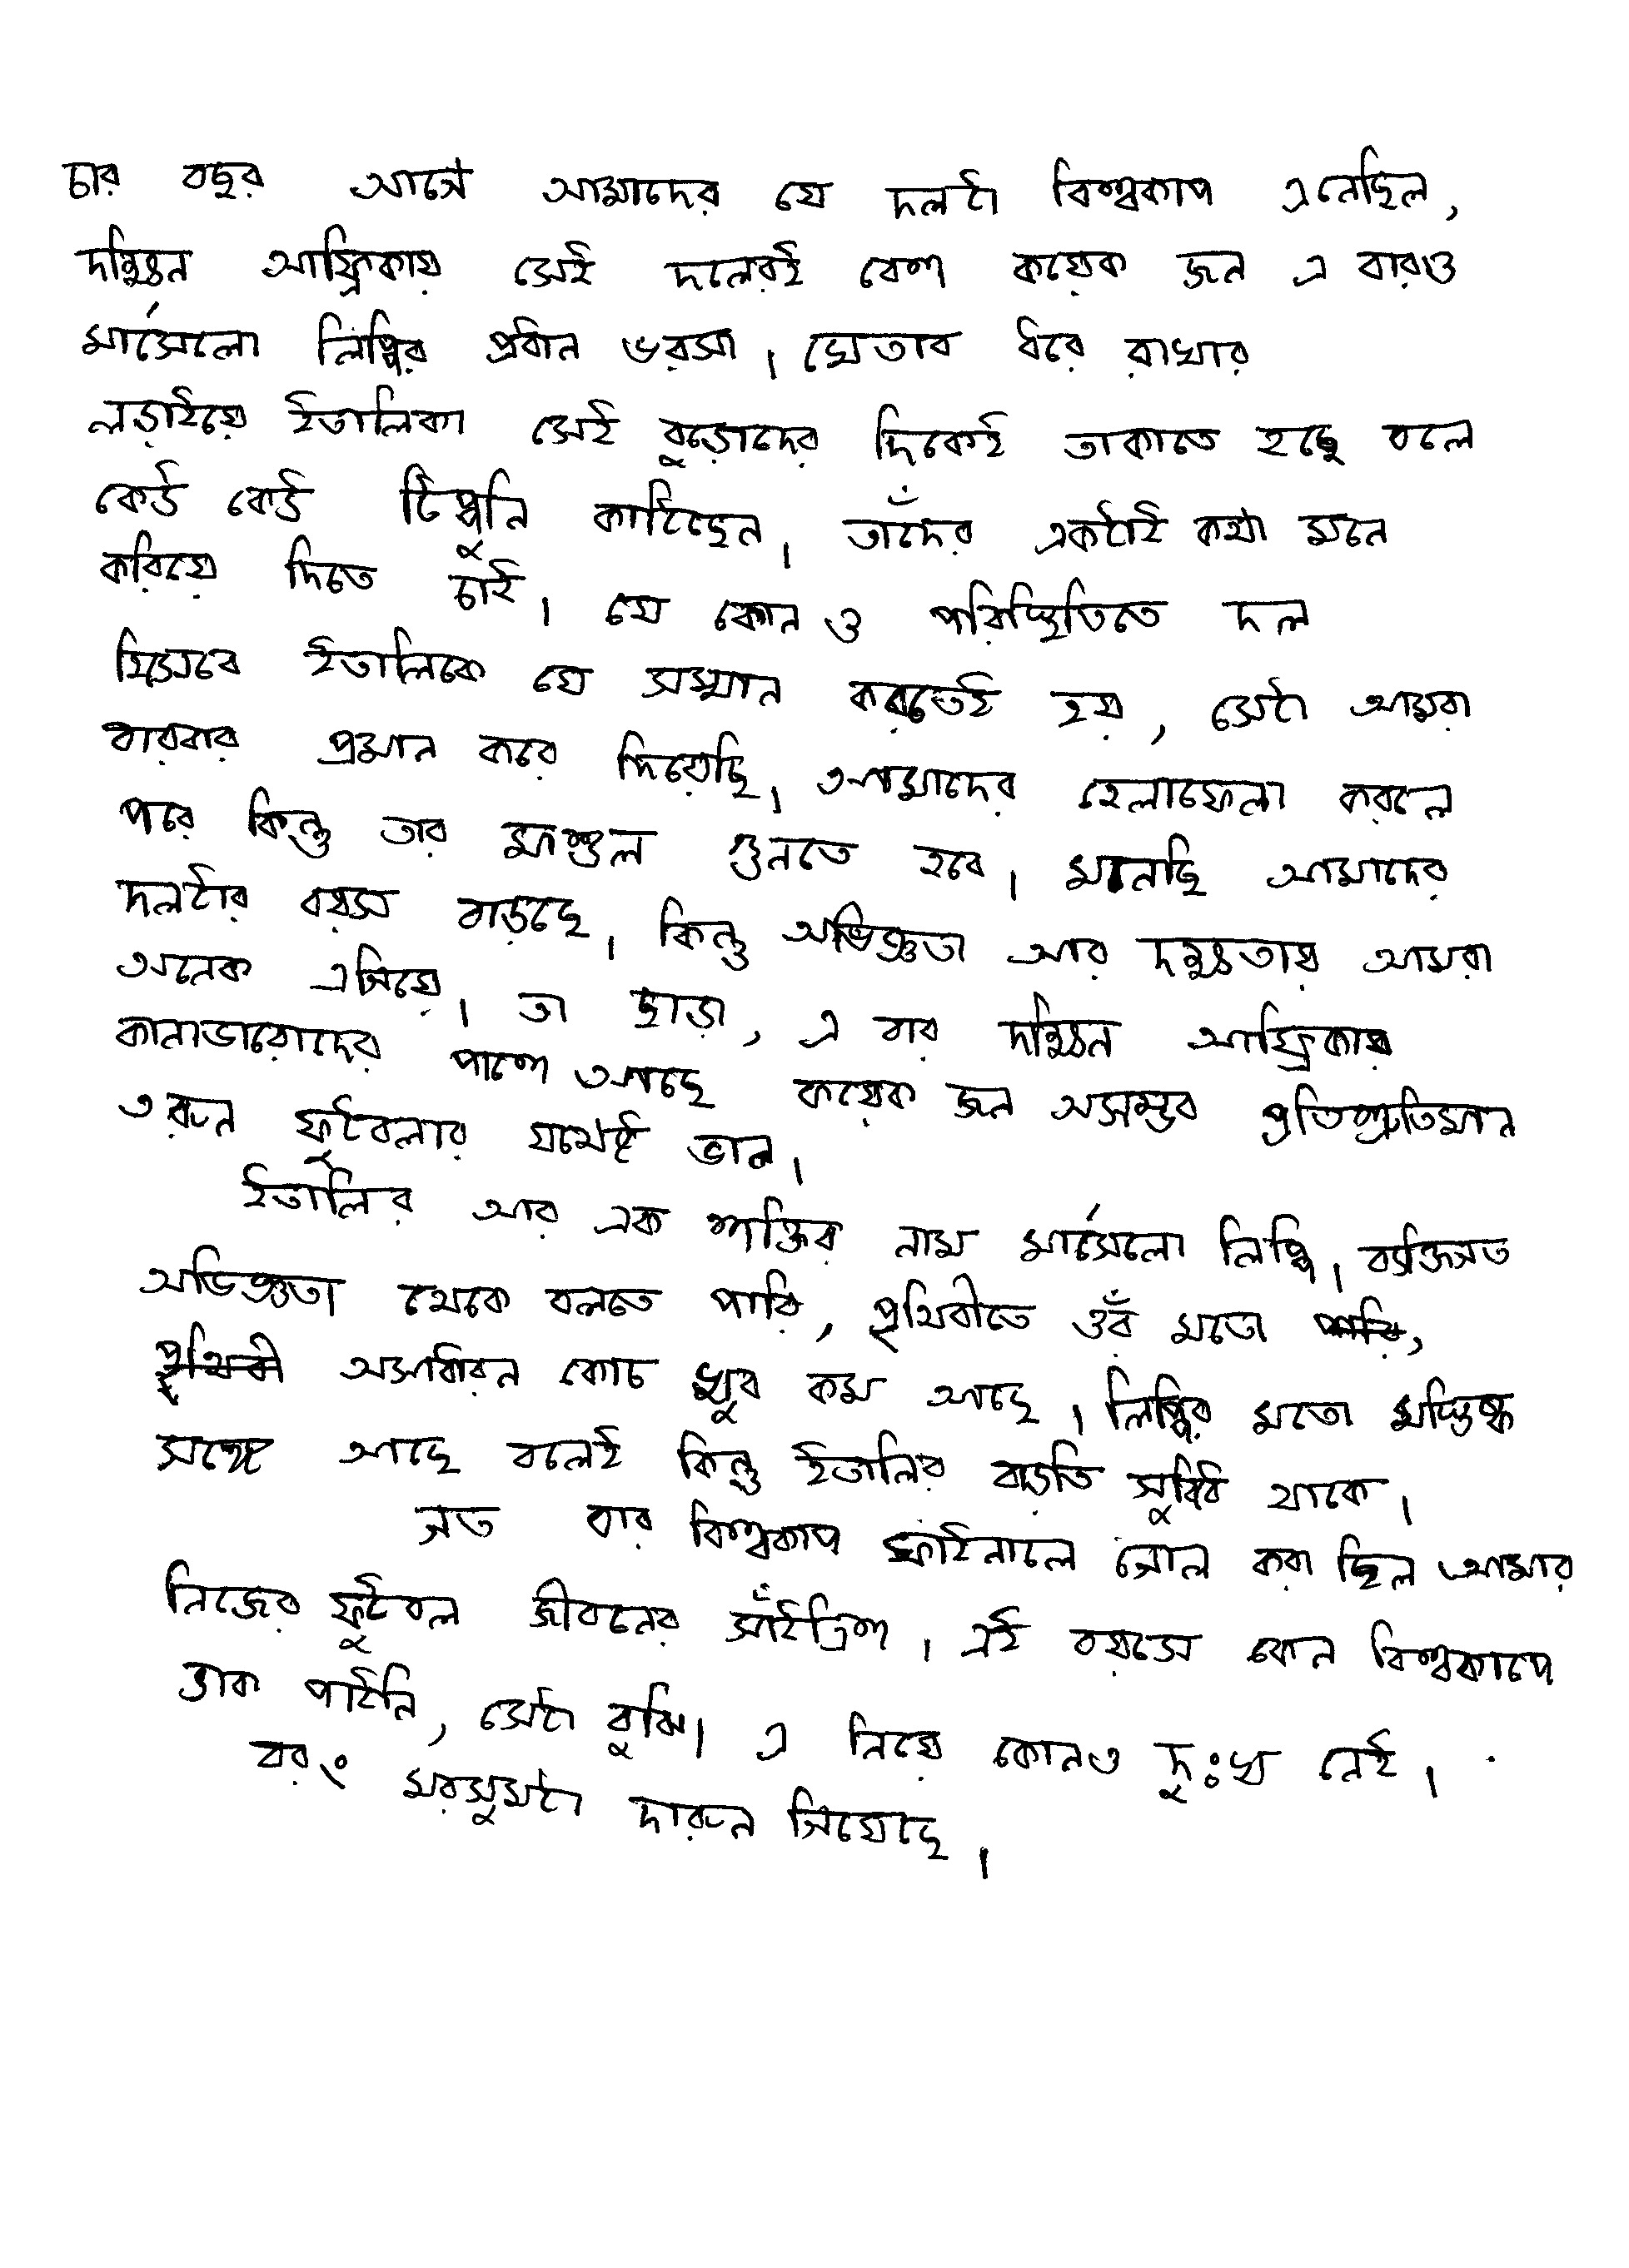 চার বছর আগে আমাদের যে দলটা বিশ্বকাপ এনেছিল,
দক্ষিণ আফ্রিকায় সেই দলেরই বেশ কয়েক জন এ বারও
মার্সেলো লিপ্পির প্রধান ভরসা। খেতাব ধরে রাখার
লড়াইয়ে ইতালিকা সেই বুড়োদের দিকেই তাকাতে হচ্ছে বলে
কেউ কেউ টিপ্পুনি কাটছেন। তাঁদের একটাই কথা মনে
করিয়ে দিতে চাই। যে কোন ও পরিস্থিতিতে দল
হিসেবে ইতালিকে যে সম্মান করতেই হয়, সেটা আমরা
বারবার প্রমান করে দিয়েছি। আমাদের হেলাফেলা করলে
পরে কিন্তু তার মাশুল গুনতে হবে। মানছি আমাদের
দলটার বয়স বাড়ছে। কিন্তু অভিজ্ঞতা আর দক্ষতায় আমরা
অনেক এগিয়ে। তা ছাড়া, এ বার দক্ষিণ আফ্রিকায়
কানাভারোদের পাশে আছে কয়েক জন অসম্ভব প্রতিশ্রুতিমান
তরুন ফুটবলার যথেষ্ট ভাল।
ইতালির আর এক শক্তির নাম মার্সেলো লিপ্পি। ব্যক্তিগত
অভিজ্ঞতা থেকে বলতে পারি, পৃথিবীতে ওঁর মতো পারি,
পৃথিবী অসাধারন কোচ খুব কম আছে। লিপ্পির মতো মস্তিষ্ক
সঙ্গে আছে বলেই কিন্তু ইতালির বাড়তি সুবিধি থাকে।
গত বার বিশ্বকাপ ফাইনালে গোল করা ছিল আমার
নিজের ফুটবল জীবনের সাঁইত্রিশ। এই বয়সে কেন বিশ্বকাপে
ডাক পাইনি, সেটা বুঝি। এ নিয়ে কোনও দুঃখ নেই।
বরং মরসুমটা দারুন গিয়েছে।